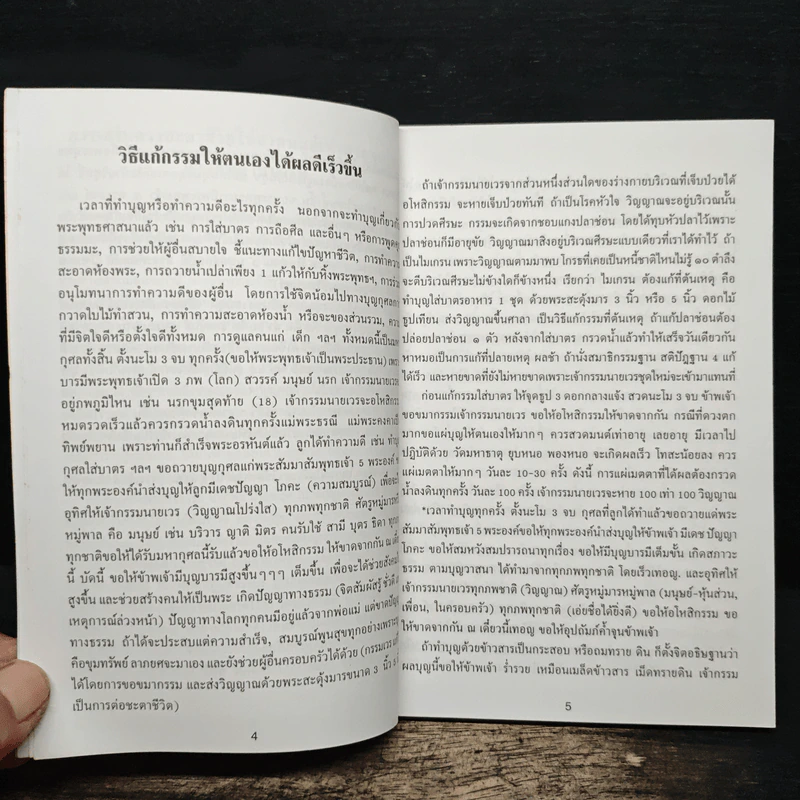 วิธีแก้กรรมให้ตนเองได้ผลดีเร็วขึ้น
เวลาที่ทำบุญหรือทำความดีอะไรทุกครั้ง นอกจากจะทำบุญเกี่ยวกับ
พระพุทธศาสนาแล้ว เช่น การใส่บาตร การถือศีล และอื่นๆ หรือการพูดคุย
ธรรมมะ, การช่วยให้ผู้อื่นสบายใจ ชี้แนะทางแก้ไขปัญหาชีวิต, การทำความ
สะอาดห้องพระ, การถวายน้ำเปล่าเพียง 1 แก้วให้กับหิ้งพระพุทธฯ, การ
อนุโมทนาการทำความดีของผู้อื่น โดยการใช้จิตน้อมไปทางบุญกุศล
กวาดใบไม้ทำสวน, การทำความสะอาดห้องน้ำ หรือจะของส่วนรวม,
ที่มีจิตใจดีหรือตั้งใจดีทั้งหมด การดูแลคนแก่ เด็ก ฯลฯ ทั้งหมดนี้เป็น
กุศลทั้งสิ้น ตั้งนะโม 3 จบ ทุกครั้ง(ขอให้พระพุทธเจ้าเป็นพระประธาน)
บารมีพระพุทธเจ้าเปิด 3 ภพ (โลก) สวรรค์ มนุษย์ นรก เจ้ากรรมนายเวร
อยู่ภพภูมิไหน เช่น นรกขุมสุดท้าย (18) เจ้ากรรมนายเวรจะอโหสิ
หมดรวดเร็วแล้วควรกรวดน้ำลงดินทุกครั้งแม่พระธรณี แม่พระคงคา
ทิพย์พยาน เพราะท่านก็สำเร็จพระอรหันต์แล้ว ลูกได้ทำความดี เช่น
กุศลใส่บาตร ฯลฯ ขอถวายบุญกุศลแก่พระสัมมาสัมพุทธเจ้า 5 พระองค์
ให้ทุกพระองค์นำส่งบุญให้ลูกมีเดชปัญญา โภคะ (ความสมบูรณ์)
อุทิศให้เจ้ากรรมนายเวร (วิญญาณโปร่งใส) ทุกภพทุกชาติ ศัตรูหมู่มาร
หมู่พาล คือ มนุษย์ เช่น บริวาร ญาติ มิตร คนรับใช้ สามี บุตร ธิดา
ทุกชาติขอให้ได้รับมหากุศลนี้รับแล้วขอให้อโหสิกรรม ให้ขาดจากกัน ณ
นี้ บัดนี้ ขอให้ข้าพเจ้ามีบุญบารมีสูงขึ้นๆๆๆ เต็มขึ้น เพื่อจะได้ช่วยสังคม
สูงขึ้น และช่วยสร้างคนให้เป็นพระ เกิดปัญญาทางธรรม (จิตสัมผัสรู้
เหตุการณ์ล่วงหน้า) ปัญญาทางโลกทุกคนมีอยู่แล้วจากพ่อแม่ แต่ขาดปัญญา
ทางธรรม ถ้าได้จะประสบแต่ความสำเร็จ, สมบูรณ์พูนสุขทุกอย่างเพราะ
คือขุมทรัพย์ ลาภยศจะมาเอง และยังช่วยผู้อื่นครอบครัวได้ด้วย (กรรมเวร
ได้โดยการขอขมากรรม และส่งวิญญาณด้วยพระสะดุ้งมารขนาด 3 นิ้ว
เป็นการต่อชะตาชีวิต)
4
ถ้าเจ้ากรรมนายเวรจากส่วนหนึ่งส่วนใดของร่างกายบริเวณที่เจ็บป่วยได้
อโหสิกรรม จะหายเจ็บป่วยทันที ถ้าเป็นโรคหัวใจ วิญญาณจะอยู่บริเวณนั้น
การปวดศีรษะ กรรมจะเกิดจากชอบแกงปลาช่อน โดยได้ทุบหัวปลาไว้เพราะ
ปลาช่อนก็มีอายุขัย วิญญาณมาสิงอยู่บริเวณศีรษะแบบเดียวที่เราได้ทำไว้ ถ้า
เป็นไมเกรน เพราะวิญญาณตามมาพบ โกรธที่เคยเป็นหนี้ชาติไหนไม่รู้ ๑๐ ตำลึง
จะตีบริเวณศีรษะไม่ข้างใดก็ข้างหนึ่ง เรียกว่า ไมเกรน ต้องแก้ที่ต้นเหตุ คือ
ทำบุญใส่บาตรอาหาร 1 ชุด ด้วยพระสะดุ้งมาร 3 นิ้ว หรือ 5 นิ้ว ดอกไม้
ธูปเทียน ส่งวิญญาณขึ้นศาลา เป็นวิธีแก้กรรมที่ต้นเหตุ ถ้าแก้ปลาช่อนต้อง
ปล่อยปลาช่อน ๑ ตัว หลังจากใส่บาตร กรวดน้ำแล้วทำให้เสร็จวันเดียวกัน
หาหมอเป็นการแก้ที่ปลายเหตุ ผลช้า ถ้านั่งสมาธิกรรมฐาน สติปัฏฐาน 4 แก้
ได้เร็ว และหายขาดที่ยังไม่หายขาดเพราะเจ้ากรรมนายเวรชุดใหม่จะเข้ามาแทนที่
ก่อนแก้กรรมใส่บาตร ให้จุดธูป 3 ดอกกลางแจ้ง สวดนะโม 3 จบ ข้าพเจ้า
ขอขมากรรมเจ้ากรรมนายเวร ขอให้อโหสิกรรมให้ขาดจากกัน กรณีที่ดวงตก
มากขอแผ่บุญให้ตนเองให้มากๆ ควรสวดมนต์เท่าอายุ เลยอายุ มีเวลาไป
ปฏิบัติด้วย วัดมหาธาตุ ยุบหนอ พองหนอ จะเกิดผลเร็ว โทสะน้อยลง ควร
แผ่เมตตาให้มากๆ วันละ 10-30 ครั้ง ดังนี้ การแผ่เมตตาที่ได้ผลต้องกรวด
น้ำลงดินทุกครั้ง วันละ 100 ครั้ง เจ้ากรรมนายเวรจะหาย 100 เท่า 100 วิญญาณ
*เวลาทำบุญทุกครั้ง ตั้งนะโม 3 จบ กุศลที่ลูกได้ทำแล้วขอถวายแด่พระ
สัมมาสัมพุทธเจ้า 5 พระองค์ขอให้ทุกพระองค์นำส่งบุญให้ข้าพเจ้า มีเดช ปัญญา
โภคะ ขอให้สมหวังสมปรารถนาทุกเรื่อง ขอให้มีบุญบารมีเต็มขั้น เกิดสภาวะ
ธรรม ตามบุญวาสนา ได้ทำมาจากทุกภพทุกชาติ โดยเร็วเทอญ. และอุทิศให้
เจ้ากรรมนายเวรทุกภพทุกชาติ (วิญญาณ) ศัตรูหมู่มารหมู่พาล (มนุษย์-หุ้นส่วน,
เพื่อน, ในครอบครัว) ทุกภพทุกชาติ (เอ่ยชื่อได้ยิ่งดี) ขอให้อโหสิกรรม ขอ
ให้ขาดจากกัน ณ เดี๋ยวนี้เทอญ ขอให้อุปถัมภ์ค้ำจุนข้าพเจ้า
ถ้าทำบุญด้วยข้าวสารเป็นกระสอบ หรือถมทราย ดิน ก็ตั้งจิตอธิษฐานว่า
ผลบุญนี้ขอให้ข้าพเจ้า ร่ำรวย เหมือนเมล็ดข้าวสาร เม็ดทรายดิน เจ้ากรรม
5